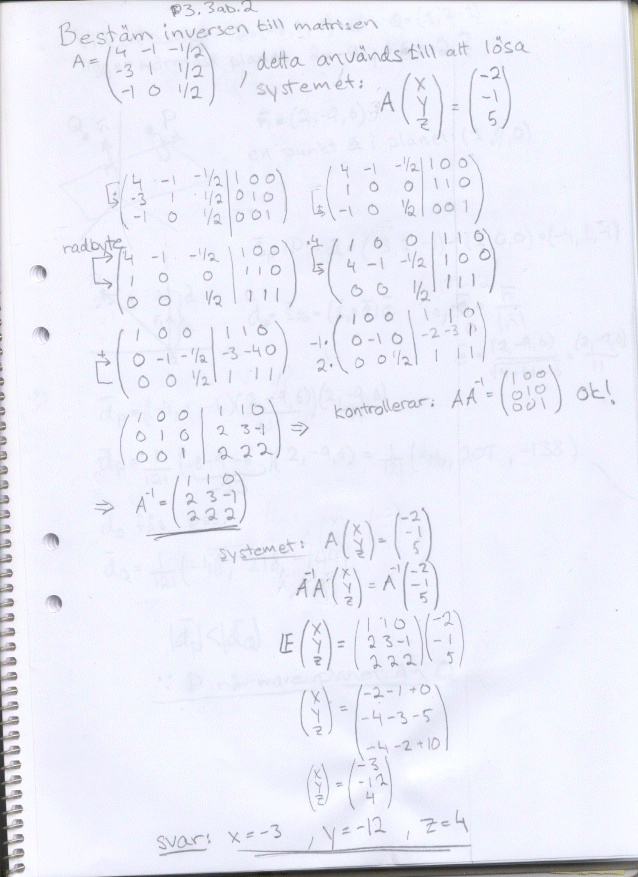 p3.3ab.2
Bestäm inversen till matrisen
A = (4 -1 -1/2
-3 1 1/2
-1 0 1/2) , detta används till att lösa
systemet: A (x y z) = (-2 -1 5)
(4 -1 -1/2 | 1 0 0
-3 1 1/2 | 0 1 0
-1 0 1/2 | 0 0 1)
(4 -1 -1/2 | 1 0 0
1 0 0 | 1 1 0
-1 0 1/2 | 0 0 1)
radbyte
(4 -1 -1/2 | 1 0 0
1 0 0 | 1 1 0
0 0 1/2 | 1 1 1)
-4
(1 0 0 | 1 1 0
4 -1 -1/2 | 1 0 0
0 0 1/2 | 1 1 1)
+
(1 0 0 | 1 1 0
0 -1 -1/2 | -3 -4 0
0 0 1/2 | 1 1 1)
(1 0 0 | 1 1 0
-1· 0 -1 0 | -2 -3 1
2· 0 0 1/2 | 1 1 1)
(1 0 0 | 1 1 0
0 1 0 | 2 3 -1
0 0 1 | 2 2 2) ⇒
kontrollerar: AA⁻¹ = (1 0 0
0 1 0
0 0 1) ok!
⇒ A⁻¹ = (1 1 0
2 3 -1
2 2 2)
systemet: A (x y z) = (-2 -1 5)
A⁻¹A (x y z) = A⁻¹ (-2 -1 5)
E (x y z) = (1 1 0
2 3 -1
2 2 2) (-2 -1 5)
(x y z) = (-2-1+0
-4-3-5
-4-2+10)
(x y z) = (-3 -12 4)
svar: x = -3 , y = -12 , z = 4